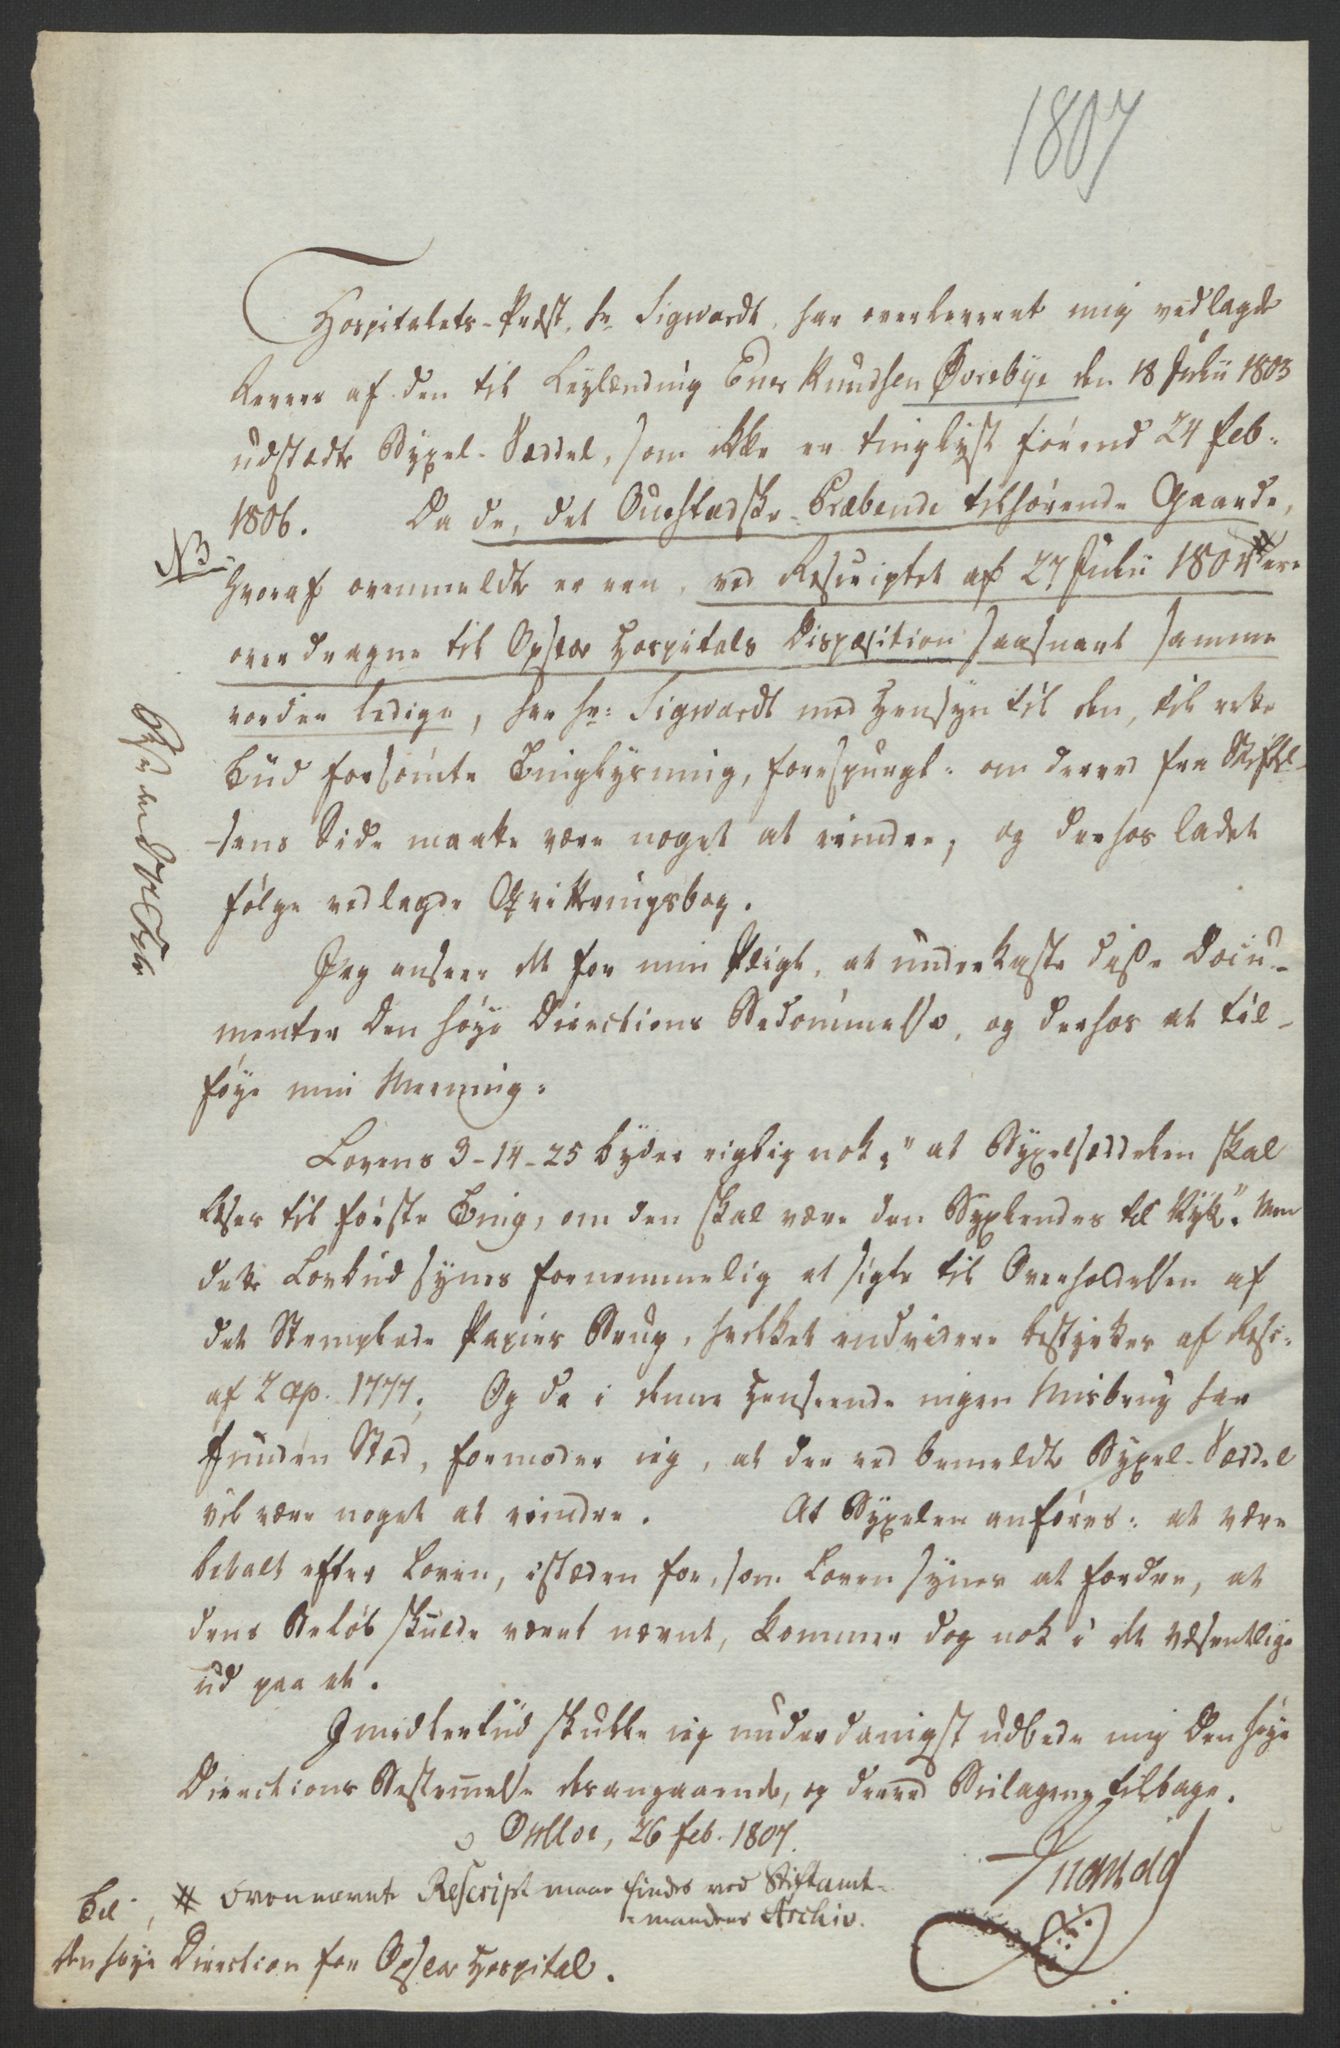 1807
Hospitalets-Præst, Hr Sigwardt, har overleveret mig vedlagde
Revers af den til Leylænding Ener Knudsen Øvrebye den 18 Julii 1803
udstædte Byxel-Sæddel, som ikke er tinglyst førend 24 Feb:
1806. Da de, det Oustedske Præbende tilhørende Gaarde,
NB
hvoraf ovenmeldte er een, ved Rescriptet af 27 Julii 1804 # ere
overdragne til Opsloe Hospitals Disposition saasnart samme
vorder ledige, har Hr: Sigwardt med Hensyn til den, til rette
Tiid forsømte Tinglysning, forespurgt: om derved fra Stiftel-
-sens Side maatte være noget at erindre, og derhos ladet
følge vedlagde Qvitteringsbog.
Jeg anseer det for min Pligt, at underkaste disse Docu-
menter Den høye Directions Bedømmelse, og derhos at til-
føye min Meening:
Lovens 3-14-25 byder rigtig nok: "at Byxelsæddelen skal
læses til første Ting, om den skal være den Byxlendes til Nytte". Men
dette Lovbud synes fornemmelig at sigte til Overholdelsen af
det Stemplede Papiirs Brug, hvilket endvidere bestyrkes af Resc:
af 2 ap. 1777. Og da i denne Henseende ingen Misbrug har
funden Stæd, formoder ieg, at der ved bemeldte Byxel-Sæddel
vil være noget at erindre. At Byxelen anføres: at være
betalt efter Loven, istæden for, som Loven synes at fordre, at
dens Beløb skulde været nævnt, kommer dog nok i det væsentlige
ud paa et.
Imidlertiid skulle ieg underdanigst udbede mig Den høye
Directions Bestemmelse desangaaende, og derved Beilagerne tilbage.
26 Feb. 1807.
# Ovennævnte Rescript maae findes ved Stiftamt-
-mandens Archiv.
Til
den høye Direction for Opsloe Hospital.